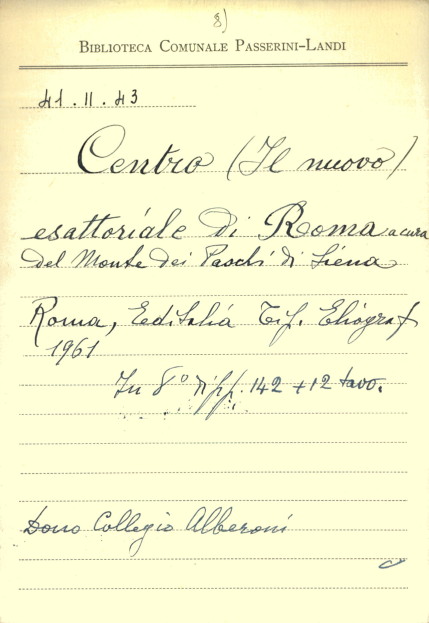 8)
BIBLIOTECA COMUNALE PASSERINI-LANDI
41.II.43
Centro (Il nuovo)
esattoriale di Roma a cura
del Monte dei Paschi di Siena
Roma, Editalia Tip. Eliograf
1961
In 8° pp. 142 + 12 tavo.
Dono Collegio Alberoni